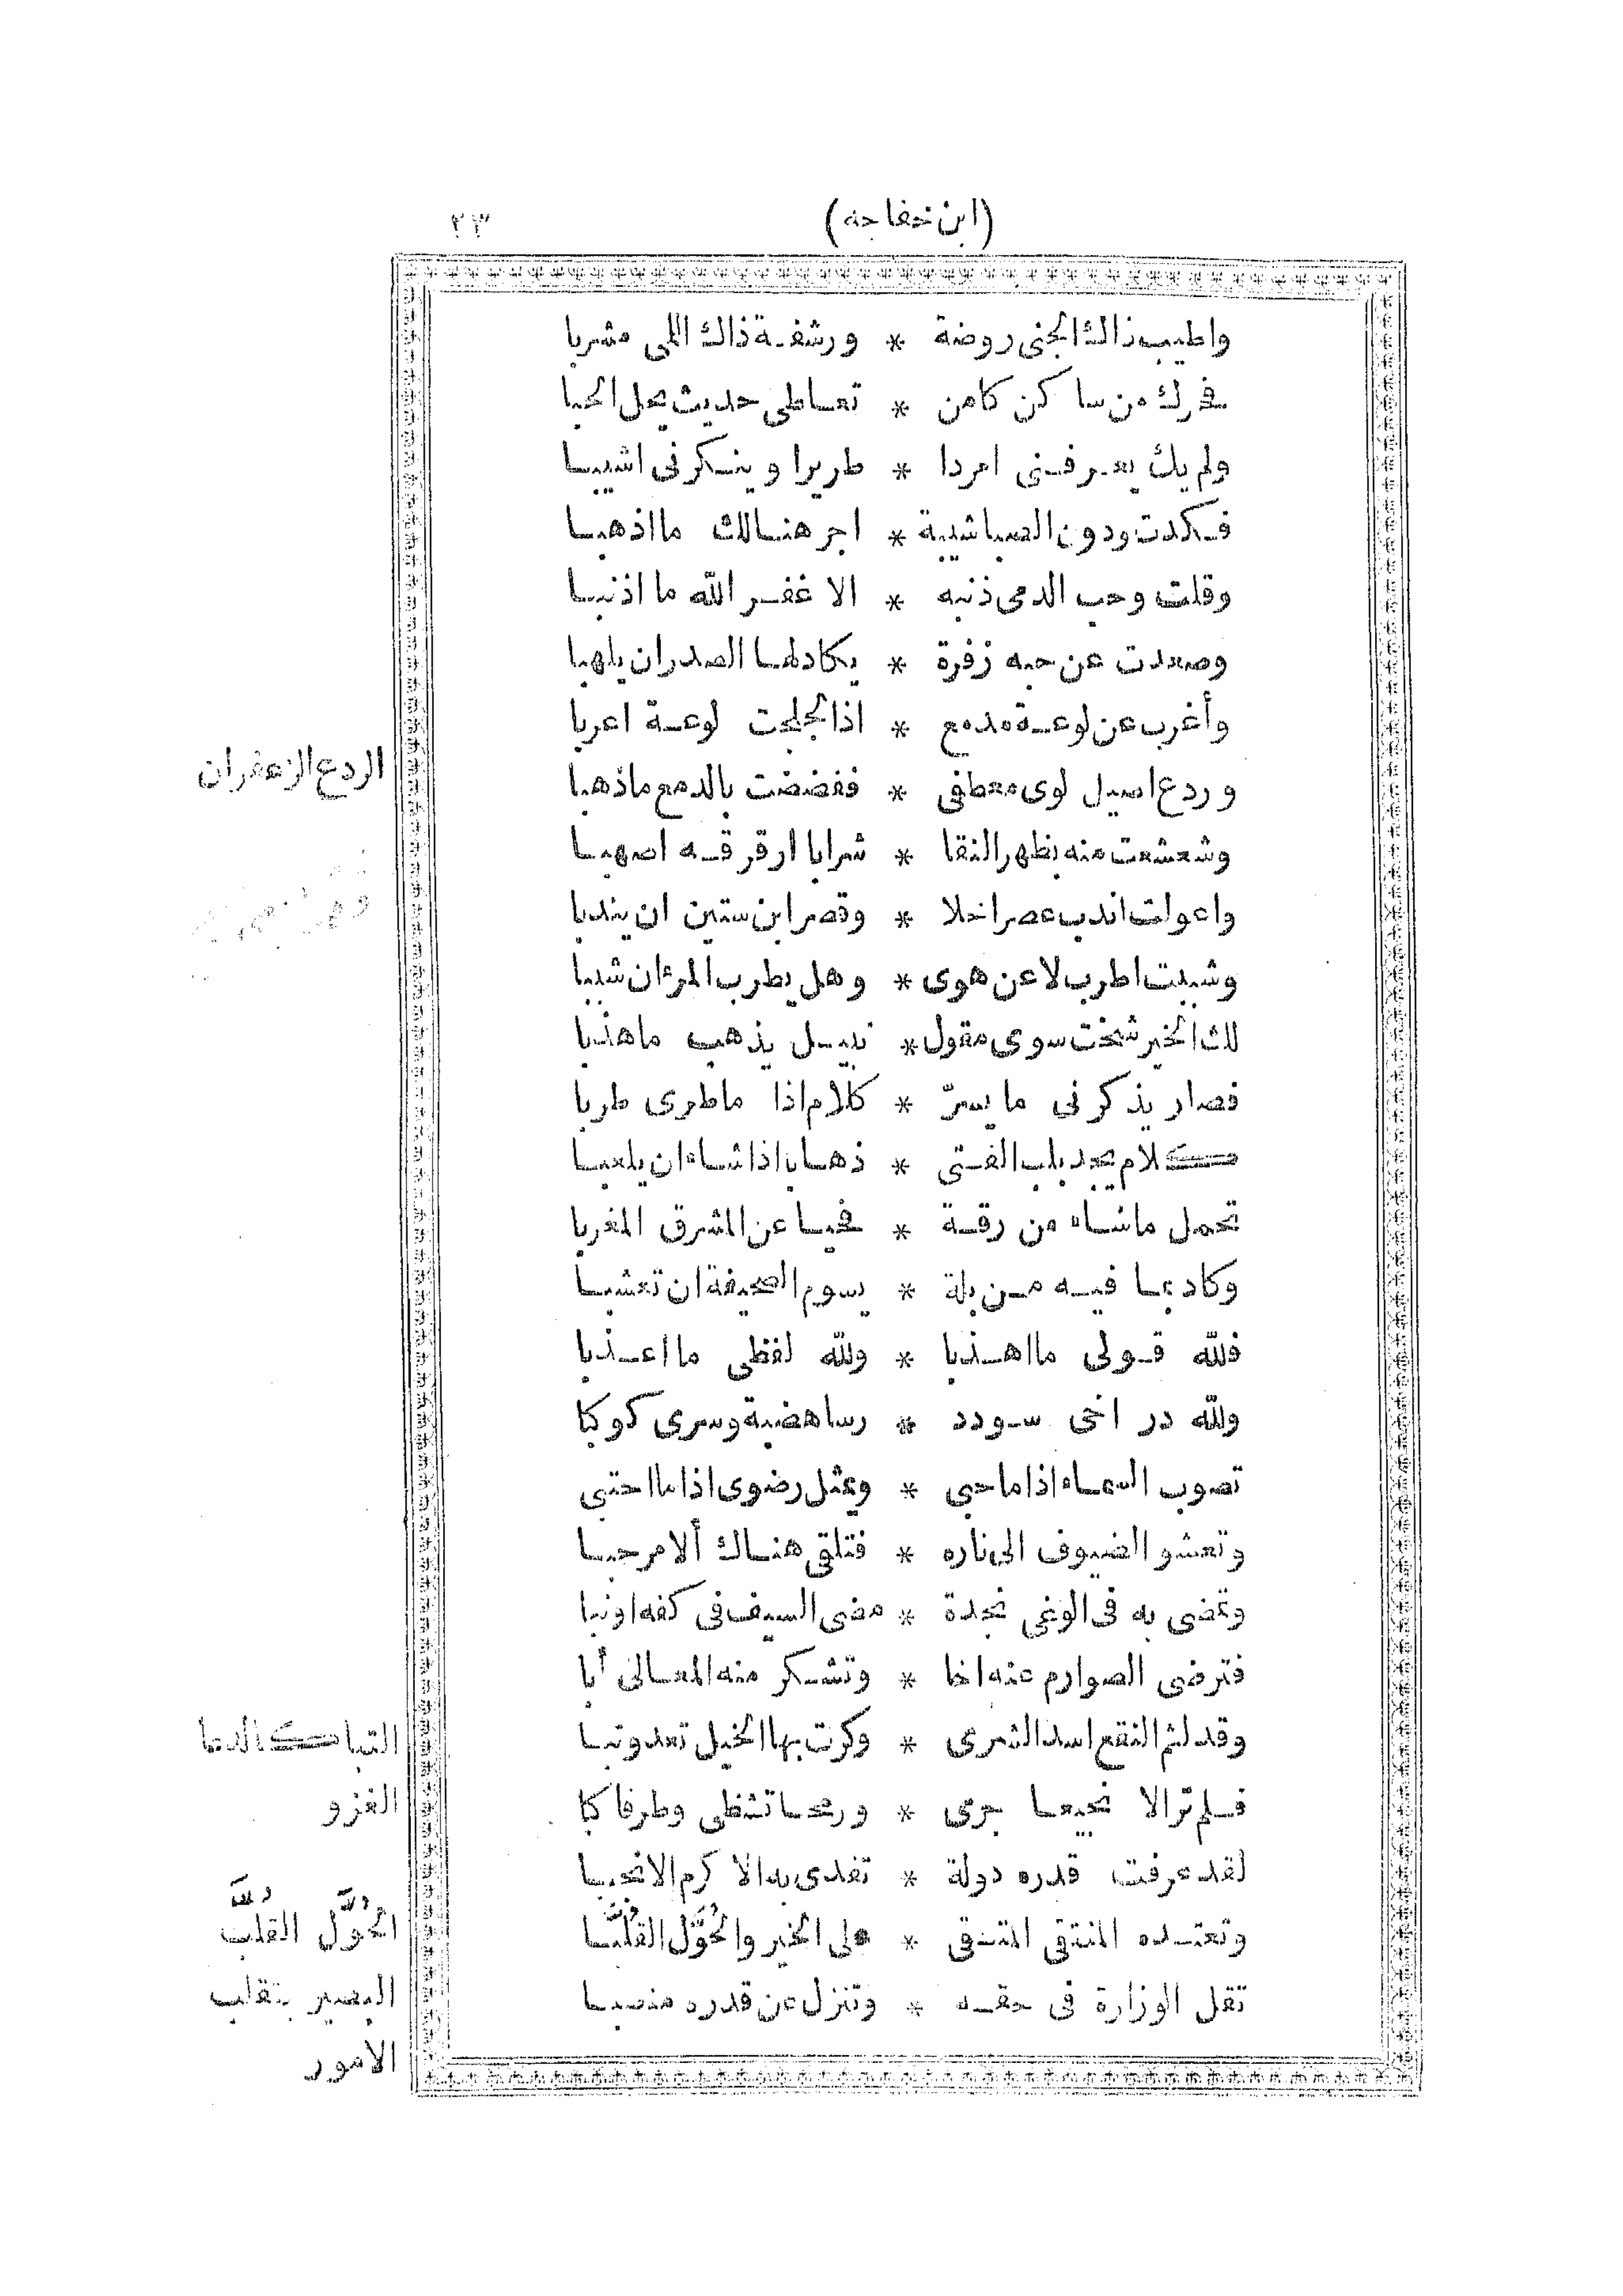 (ابن خفاجه)
٢٣
واطيب ذاك الجنى روضة * ورشفة ذاك اللمى مشربا
فحرك من ساكن كامن * تعاطى حديث يحل الحبا
ولم يك يعرفنى امردا * طريرا وينكرنى اشيبا
فكدت ودون الصبا شيبة * اجر هنالك ما اذهبا
وقلت وحب الدمى ذنبه * الا غفر الله ما اذنبا
وصعدت عن حبه زفرة * يكاد لها الصدر ان يلهبا
وأغرب عن لوعة مدمع * اذا لجلجت لوعة اعربا
وردع اصيل لوى معطفى * ففضضت بالدمع ما ذهبا
الردع الزعفران
وشعشعت منه بظهر النقا * شرابا ارقرقه اصهبا
واعولت اندب عصرا خلا * وقصر ابن ستين ان يندبا
وشببت اطرب لا عن هوى * وهل يطرب المرء ان شببا
لك الخير شخت سوى مقول * نبيل يذهب ما هذبا
فصار يذكرنى ما يسرّ * كلام اذا ما طرى طربا
كلام يجد بلب الفتى * ذهابا اذا شاء ان يلعبا
تحمل ما شاء من رقة * فحيا عن المشرق المغربا
وكاد بما فيه من بلة * يسوم الصحيفة ان تعشبا
فلله قولى ما اهذبا * ولله لفظى ما اعذبا
ولله در اخى سودد * رسا هضبة وسرى كوكبا
تصوب السماء اذا ما حبى * ويمثل رضوى اذا ما احتبى
وتعشو الضيوف الى ناره * فتلقى هناك ألا مرحبا
وتمضى به فى الوغى نجدة * مضى السيف فى كفه او نبا
فترضى الصوارم عنه اخا * وتشكر منه المعالى أبا
وقد لثم النقع اسد الشرى * وكرت بها الخيل تعدو ثبا
الثبا كالدعا
فلم تر الا نجيعا جرى * ورمحا تشظى وطرفا كبا
الغزو
لقد عرفت قدره دولة * تفدى به الاكرم الانجبا
وتعتده المنتقى المتقى * على الخير والحُوَّل القُلَّبا
الحُوَّل القلَّب
تقل الوزارة فى حقه * وتنزل عن قدره منصبا
البصير بتقلب
الامور